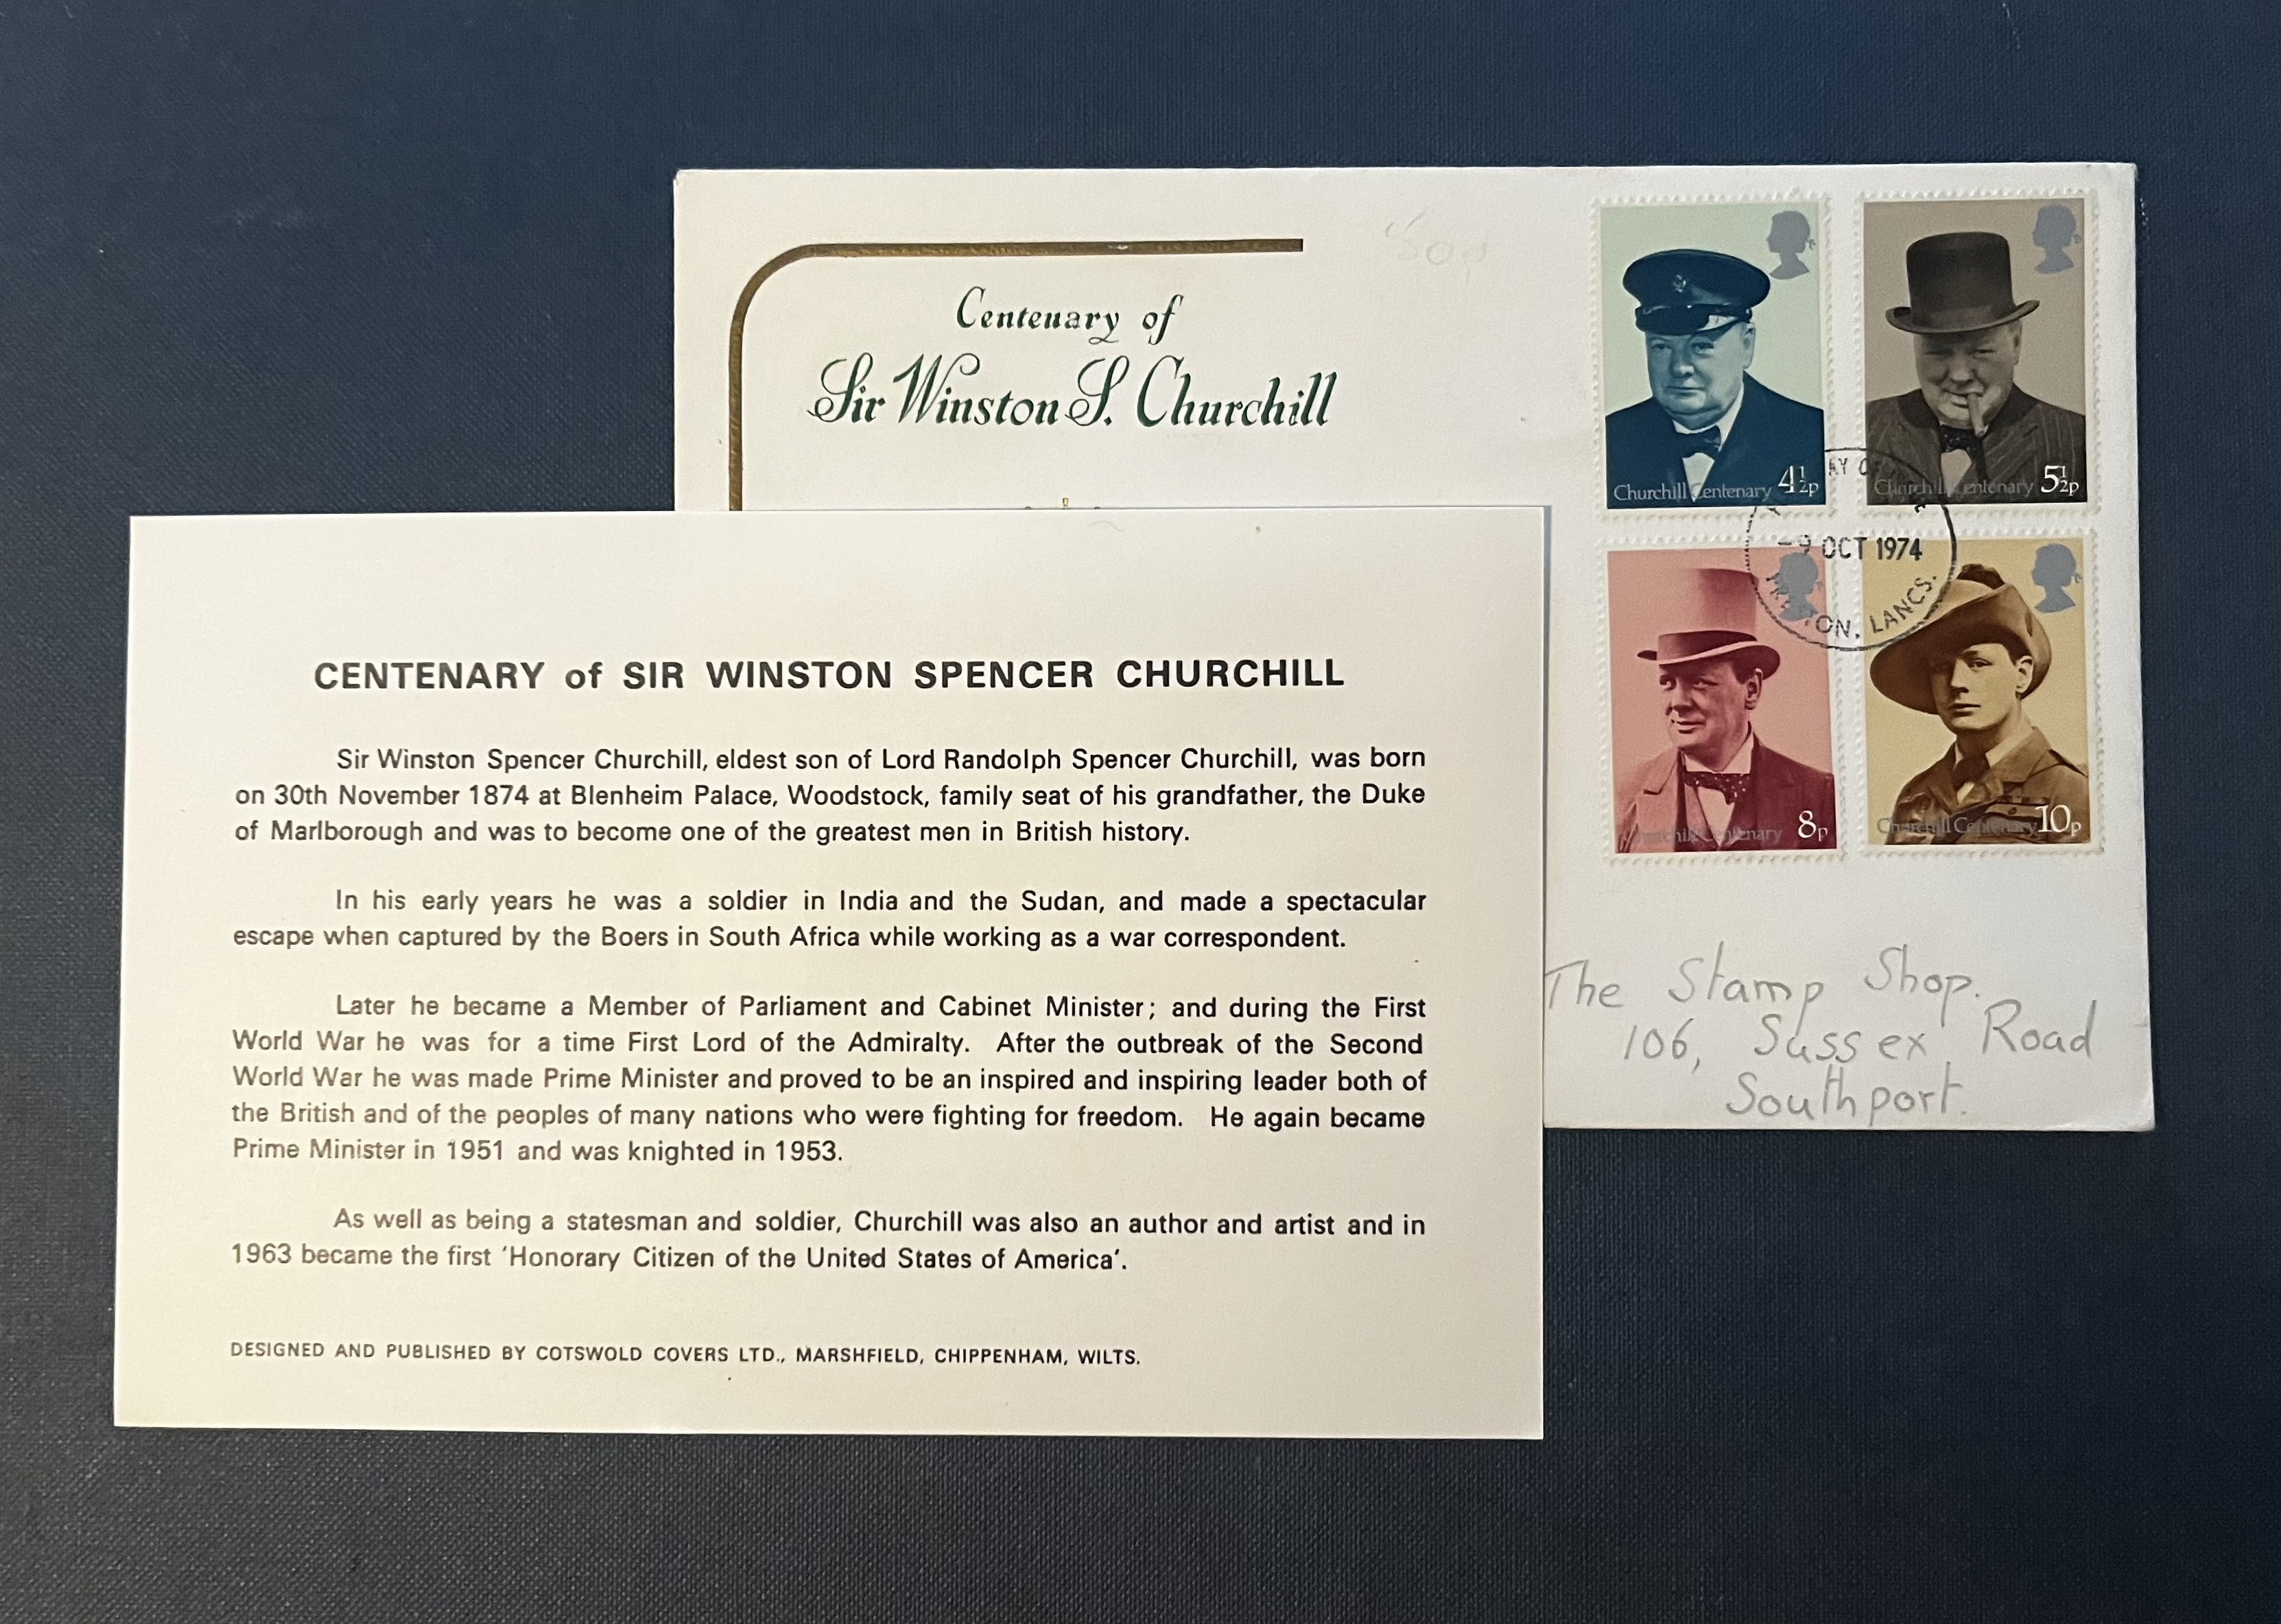 Centenary of
Sir Winston S. Churchill
Churchill Centenary 4½p
Churchill Centenary 5½p
-9 OCT 1974
PRESTON, LANCS.
Churchill Centenary 8p
Churchill Centenary 10p
The Stamp Shop.
106, Sussex Road
Southport.
CENTENARY of SIR WINSTON SPENCER CHURCHILL
Sir Winston Spencer Churchill, eldest son of Lord Randolph Spencer Churchill, was born
on 30th November 1874 at Blenheim Palace, Woodstock, family seat of his grandfather, the Duke
of Marlborough and was to become one of the greatest men in British history.
In his early years he was a soldier in India and the Sudan, and made a spectacular
escape when captured by the Boers in South Africa while working as a war correspondent.
Later he became a Member of Parliament and Cabinet Minister; and during the First
World War he was for a time First Lord of the Admiralty. After the outbreak of the Second
World War he was made Prime Minister and proved to be an inspired and inspiring leader both of
the British and of the peoples of many nations who were fighting for freedom. He again became
Prime Minister in 1951 and was knighted in 1953.
As well as being a statesman and soldier, Churchill was also an author and artist and in
1963 became the first 'Honorary Citizen of the United States of America'.
DESIGNED AND PUBLISHED BY COTSWOLD COVERS LTD., MARSHFIELD, CHIPPENHAM, WILTS.